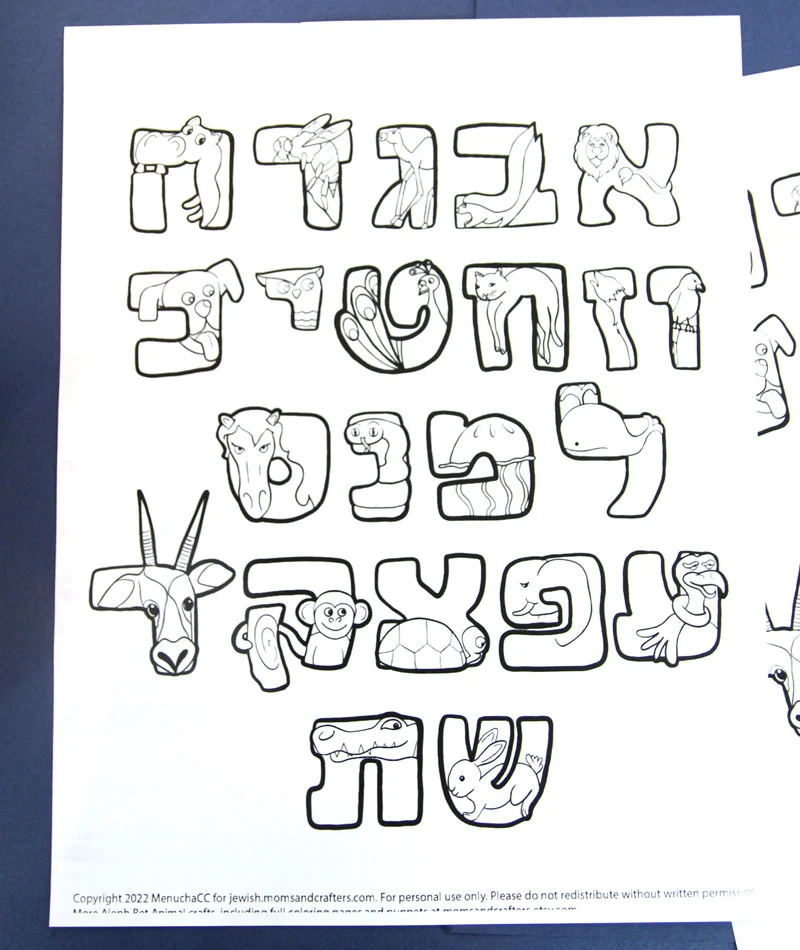 א ב ג ד ה
ו ז ח ט י כ
ל מ נ ס
ע פ צ ק ר
ש ת
Copyright 2022 MenuchaCC for jewish.momsandcrafters.com. For personal use only. Please do not redistribute without written permission
More Aleph Bet Animal crafts, including full coloring pages and puppets at momsandcrafters.etsy.com